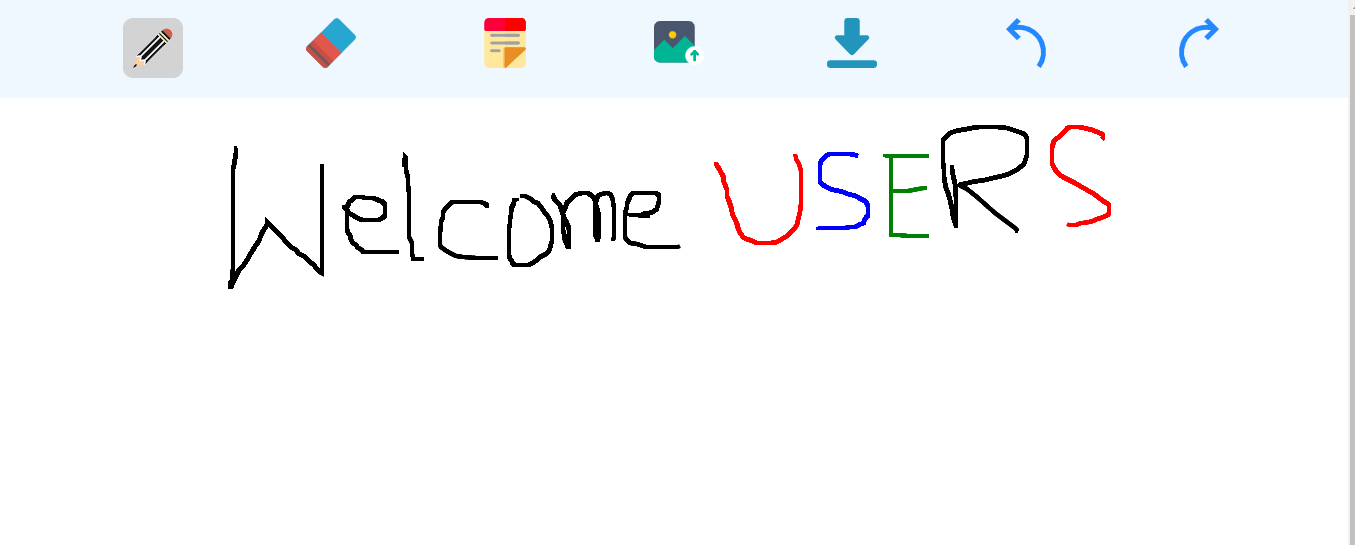 Welcome USERS